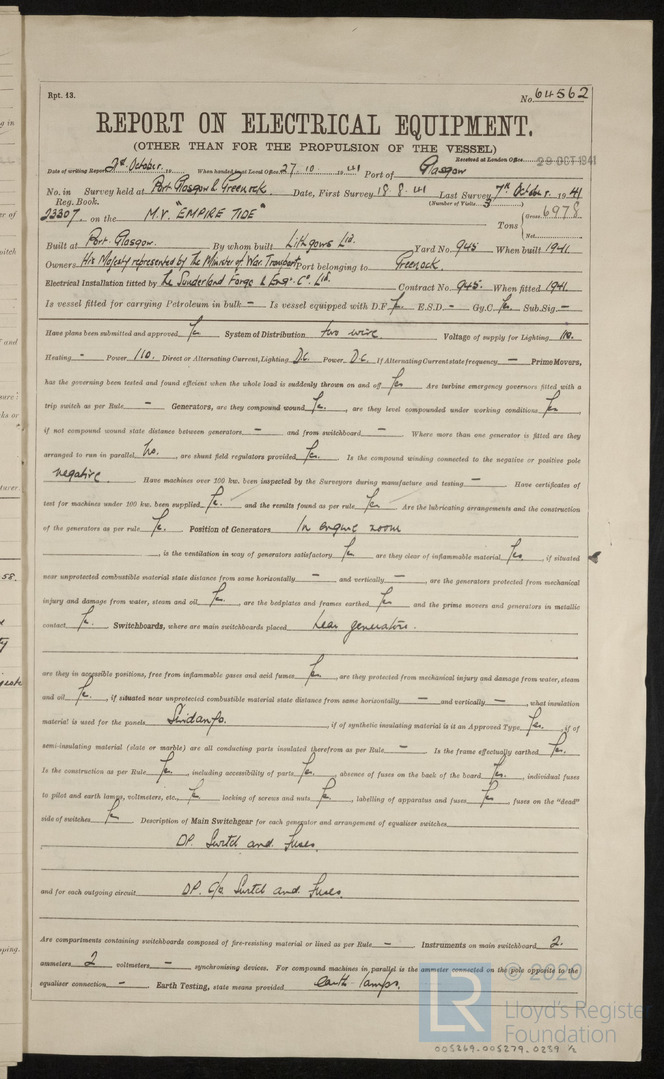 Rpt. 13.
No. 64562
REPORT ON ELECTRICAL EQUIPMENT.
(OTHER THAN FOR THE PROPULSION OF THE VESSEL)
Received at London Office 29 OCT 1941
Date of writing Report 2d. October. 19 When handed in at Local Office 27. 10. 19 41 Port of Glasgow
No. in Survey held at Port Glasgow & Greenock. Date, First Survey 18. 8. 41 Last Survey 7th October 1941
Reg. Book. (Number of Visits 3)
23307. on the M.V. "EMPIRE TIDE" Tons { Gross 6978 Net
Built at Port Glasgow. By whom built Lithgows Ltd. Yard No. 945 When built 1941.
Owners His Majesty represented by The Minister of War Transport Port belonging to Greenock.
Electrical Installation fitted by The Sunderland Forge & Eng. Co. Ltd. Contract No. 945. When fitted 1941
Is vessel fitted for carrying Petroleum in bulk - Is vessel equipped with D.F. Yes E.S.D. - Gy.C. Yes Sub.Sig. -
Have plans been submitted and approved Yes System of Distribution two wire. Voltage of supply for Lighting 110.
Heating - Power 110. Direct or Alternating Current, Lighting D.C. Power D.C. If Alternating Current state frequency - Prime Movers,
has the governing been tested and found efficient when the whole load is suddenly thrown on and off Yes Are turbine emergency governors fitted with a
trip switch as per Rule - Generators, are they compound wound Yes, are they level compounded under working conditions Yes,
if not compound wound state distance between generators - and from switchboard - Where more than one generator is fitted are they
arranged to run in parallel No., are shunt field regulators provided Yes. Is the compound winding connected to the negative or positive pole
negative. Have machines over 100 kw. been inspected by the Surveyors during manufacture and testing - Have certificates of
test for machines under 100 kw. been supplied Yes. and the results found as per rule Yes Are the lubricating arrangements and the construction
of the generators as per rule Yes. Position of Generators In engine room
, is the ventilation in way of generators satisfactory Yes are they clear of inflammable material Yes, if situated
near unprotected combustible material state distance from same horizontally - and vertically -, are the generators protected from mechanical
injury and damage from water, steam and oil Yes., are the bedplates and frames earthed Yes and the prime movers and generators in metallic
contact Yes. Switchboards, where are main switchboards placed near generators.
are they in accessible positions, free from inflammable gases and acid fumes Yes, are they protected from mechanical injury and damage from water, steam
and oil Yes., if situated near unprotected combustible material state distance from same horizontally - and vertically -, what insulation
material is used for the panels Sindanyo., if of synthetic insulating material is it an Approved Type Yes., if of
semi-insulating material (slate or marble) are all conducting parts insulated therefrom as per Rule - Is the frame effectually earthed Yes.
Is the construction as per Rule Yes., including accessibility of parts Yes., absence of fuses on the back of the board Yes., individual fuses
to pilot and earth lamps, voltmeters, etc. Yes locking of screws and nuts Yes, labelling of apparatus and fuses Yes, fuses on the "dead"
side of switches Yes Description of Main Switchgear for each generator and arrangement of equaliser switches
DP. Switch and Fuses.
and for each outgoing circuit DP. C/o Switch and Fuses.
Are compartments containing switchboards composed of fire-resisting material or lined as per Rule - Instruments on main switchboard 2.
ammeters 2 voltmeters - synchronising devices. For compound machines in parallel is the ammeter connected on the pole opposite to the
equaliser connection - Earth Testing, state means provided earth lamps.
© 2020
LR
Lloyd's Register
Foundation
005269-005279-0239 1/2